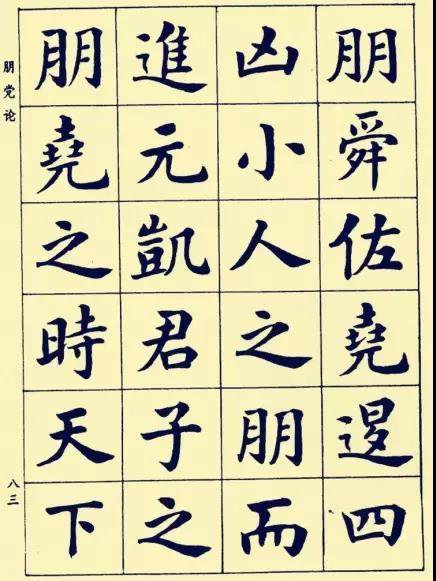 朋舜佐堯退四
凶小人之朋而
進元凱君子之
朋堯之時天下
朋党论
八三